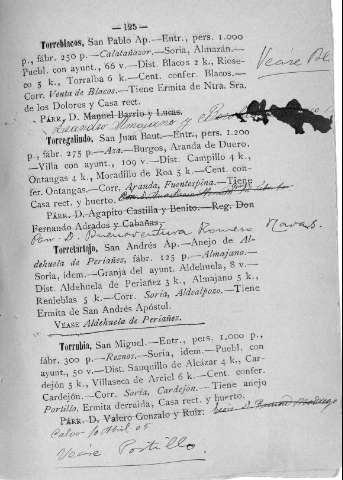 — 125 —
Torreblacos, San Pablo Ap.—Entr., pers. 1.000
p., fábr. 250 p.—Calatañazor.—Soria, Almarán.—
Puebl. con ayunt., 66 v.—Dist. Blacos 2 k., Riose-
co 5 k., Torralba 6 k.—Cent. confer. Blacos.—
Corr. Venta de Blacos.—Tiene Ermita de Ntra. Sra.
de los Dolores y Casa rect.
Párr. D. Manuel Barrio y Lucas.
Torregalindo, San Juan Baut.—Entr., pers. 1.200
p., fábr. 275 p.—Aza.—Burgos, Aranda de Duero.
—Villa con ayunt., 109 v.—Dist. Campillo 4 k.,
Ontangas 4 k., Moradillo de Roa 5 k.—Cent. con-
fer. Ontangas.—Corr. Aranda, Fuentespina.—Tiene
Casa rect. y huerto.
Párr. D. Agapito Castilla y Benito.—Reg. Don
Fernando Adrados y Cabañas.
Parr. D. Buenaventura Romero Navas.
Torretartajo, San Andrés Ap.—Anejo de Al-
dehuela de Periañez, fábr. 125 p.—Almajano.—
Soria, idem.—Granja del ayunt. Aldehuela, 8 v.—
Dist. Aldehuela de Periañez 3 k., Almajano 5 k.,
Renieblas 5 k.—Corr. Soria, Aldealpozo.—Tiene
Ermita de San Andrés Apóstol.
Vease Aldehuela de Periañez.
Torrubia, San Miguel.—Entr., pers. 1.000 p.,
fábr. 300 p.—Reznos.—Soria, idem.—Puebl. con
ayunt., 50 v.—Dist. Sauquillo de Alcázar 4 k., Car-
dejón 5 k., Villaseca de Arciel 6 k.—Cent. confer.
Cardejón.—Corr. Soria, Cardejón.—Tiene anejo
Portillo. Ermita derruida, Casa rect. y huerto.
Párr. D. Valero Gonzalo y Ruiz.
Calvo 10 Abril 05
Vease Portillo.